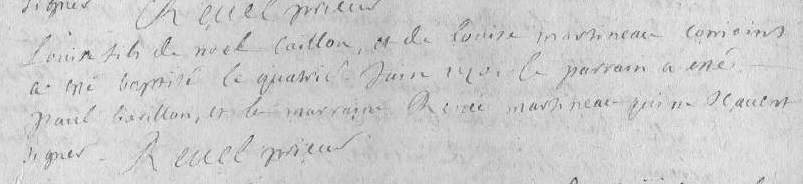 signer Revel prieur
Louise fils de noel Caillon, et de Louise martineau conioints
a esté baptisé le quatrie Juin 1701 le parrain a esté
paul Caillon, et la marraine Renée martineau qui ne scauent
signer. Revel prieur